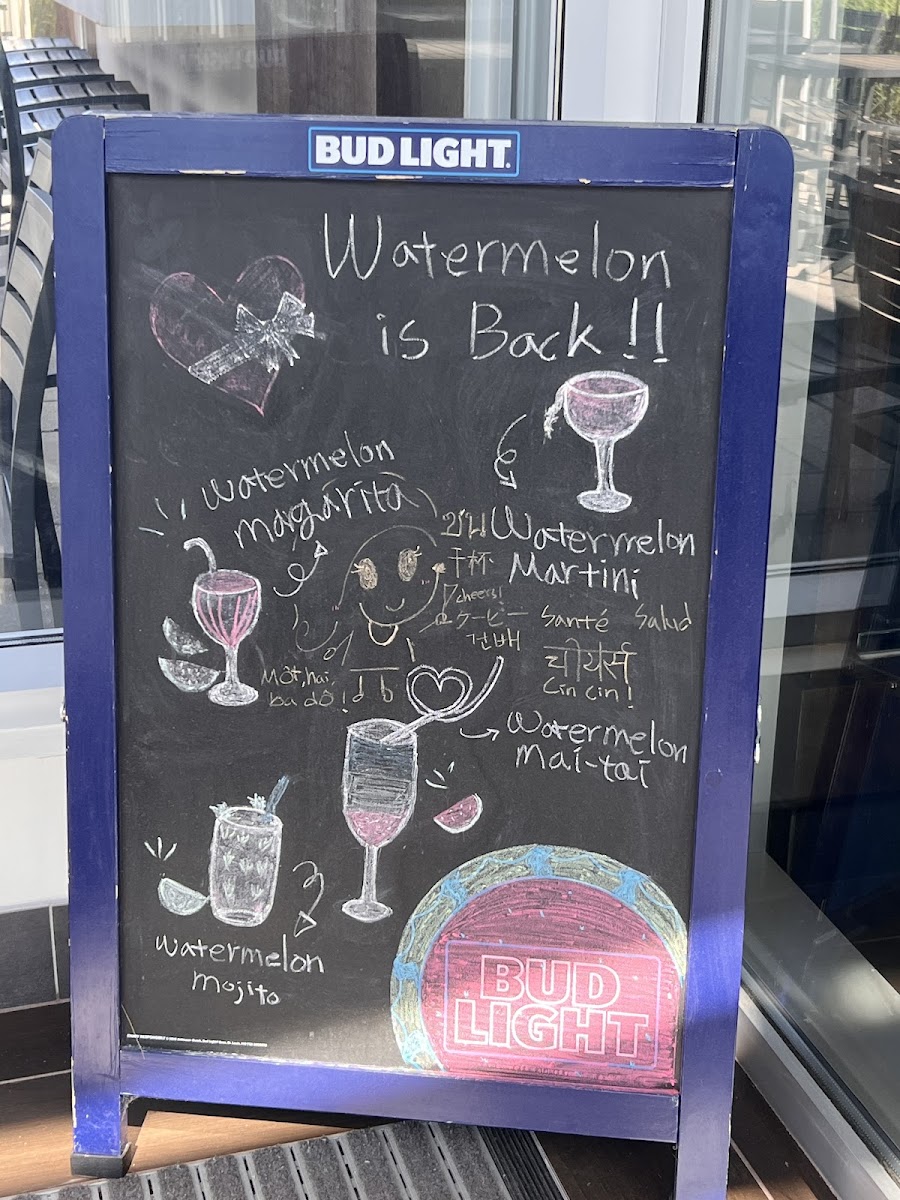 BUD LIGHT
Watermelon
is Back!!
Watermelon
margarita
ชน
Watermelon
Martini
干杯
cheers!
Santé Salud
건배
चीयर्स
Cin cin!
Một, hai,
ba dô!
Watermelon
mai-tai
Watermelon
mojito
BUD
LIGHT